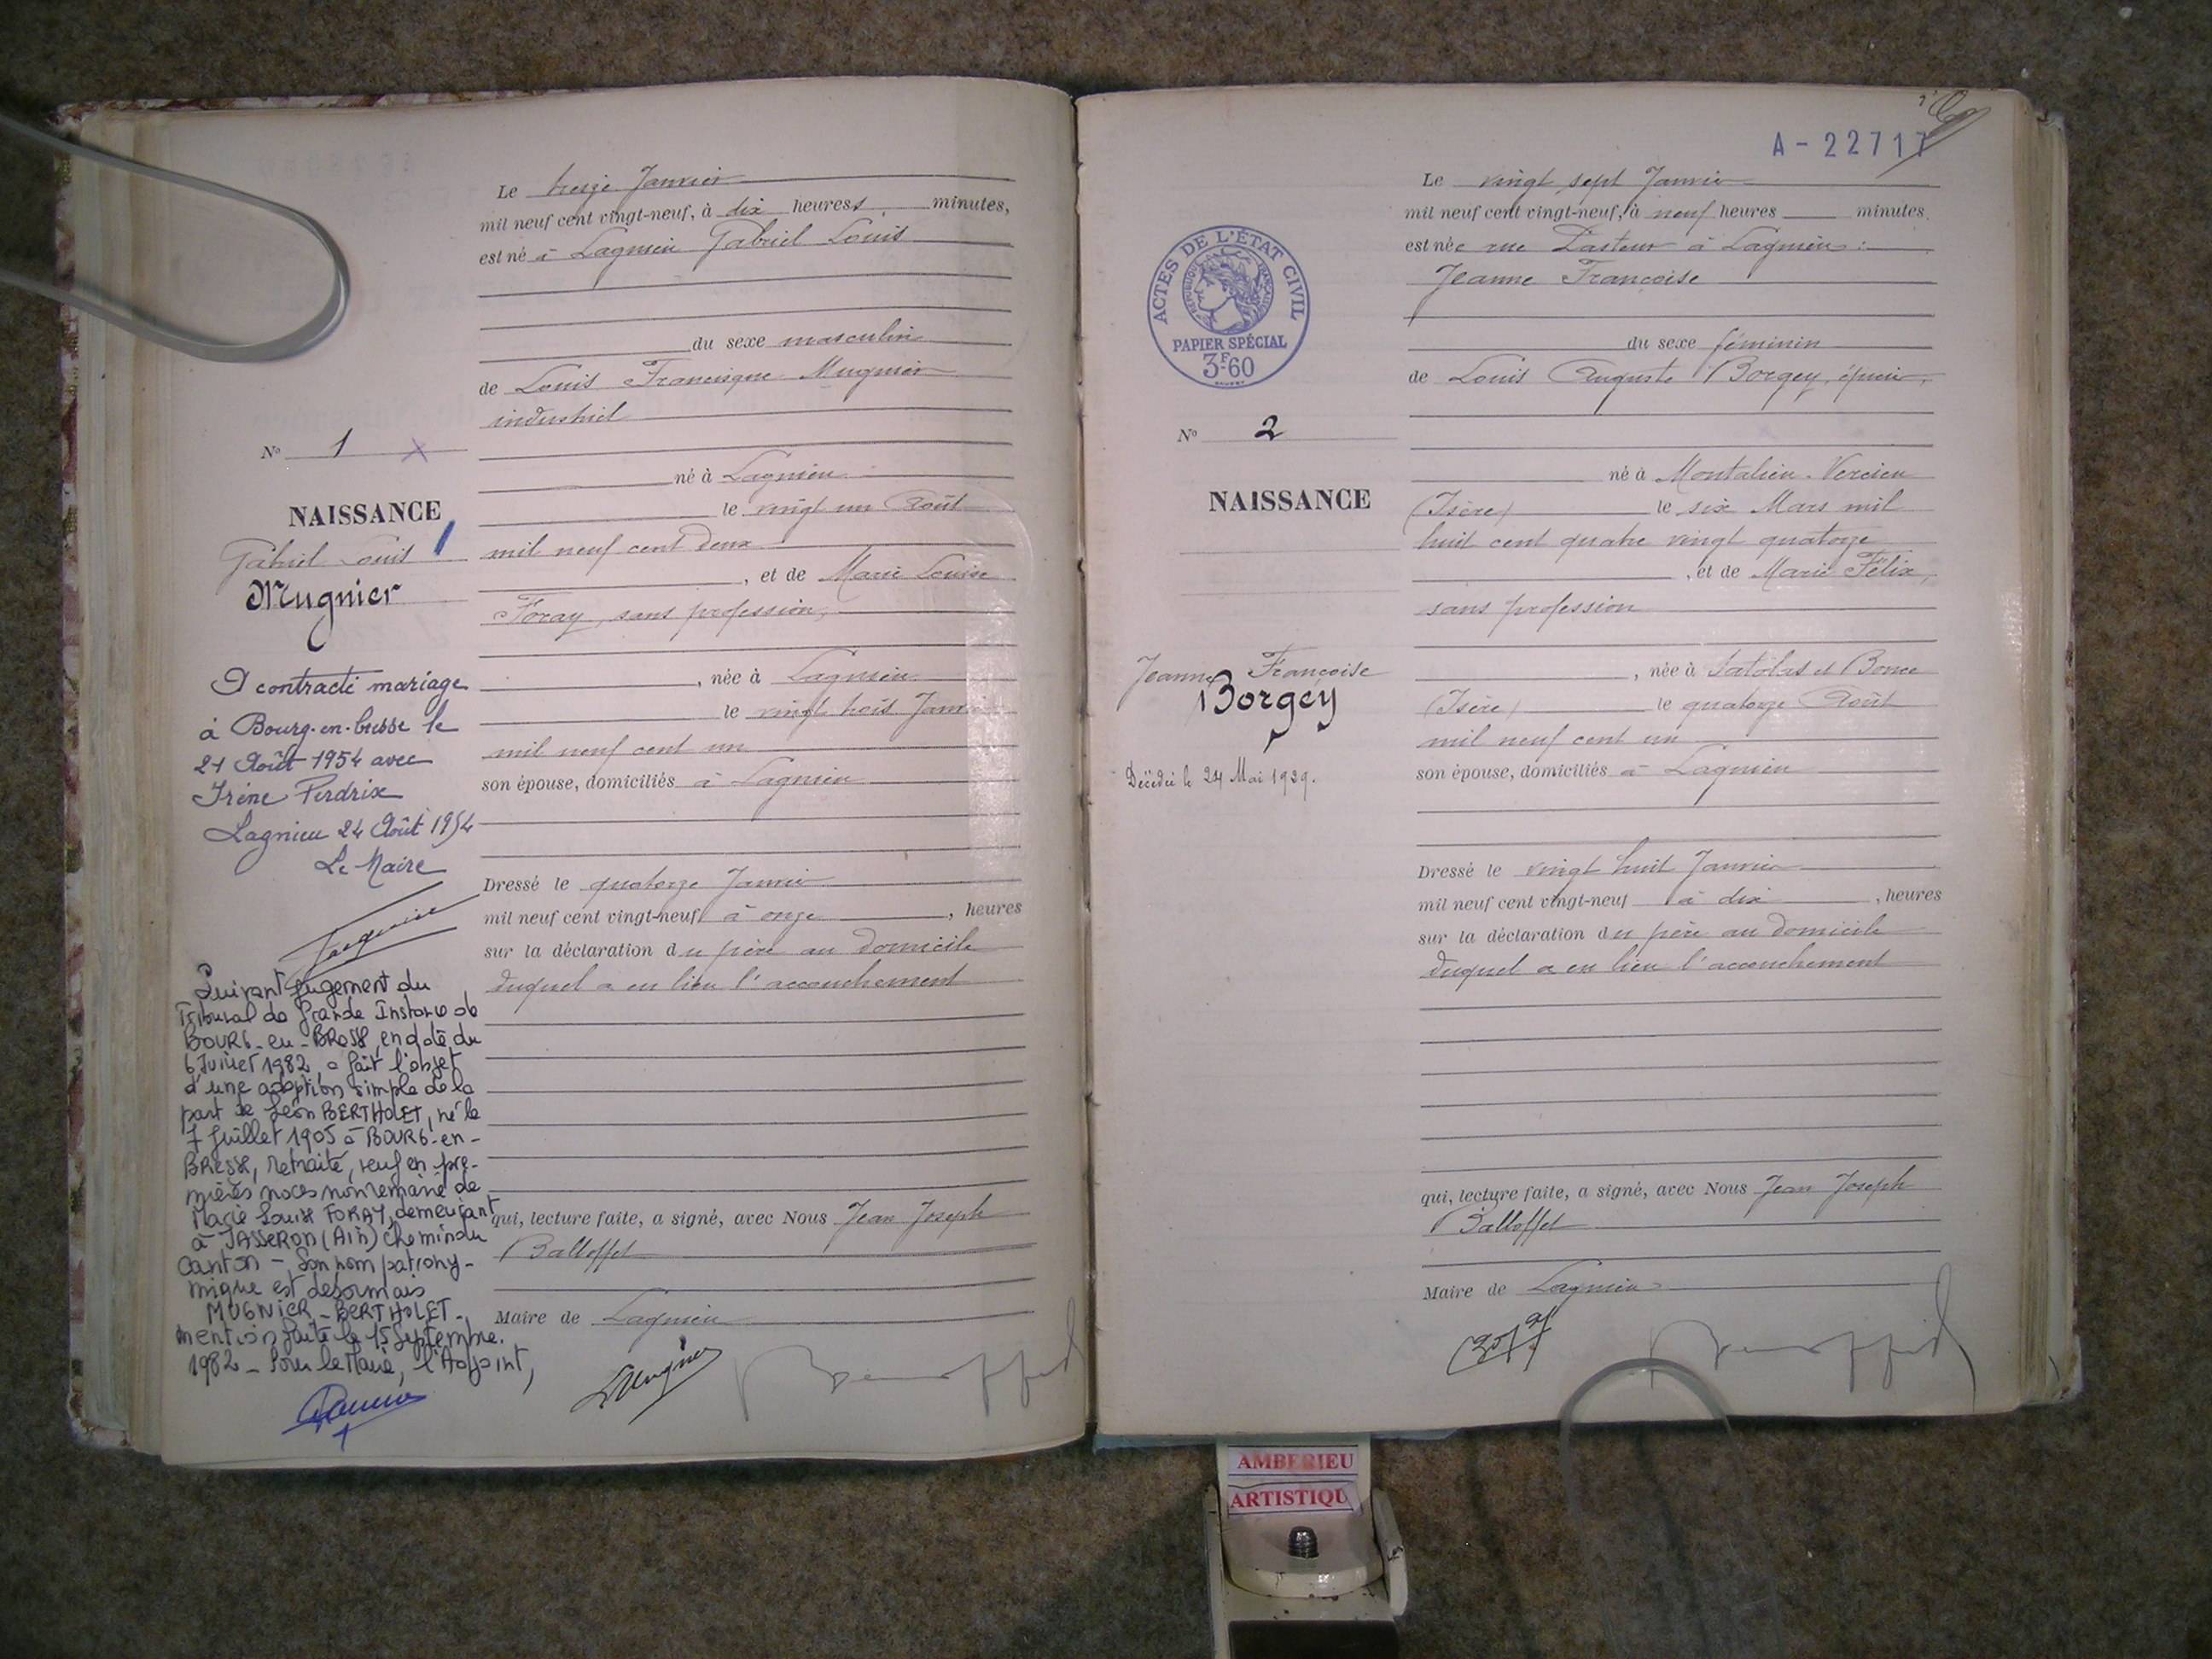 Le treize Janvier
mil neuf cent vingt-neuf, à dix heures, minutes,
est né à Lagnieu Gabriel Louis
du sexe masculin
de Louis Francisque Mugnier
industriel
né à Lagnieu
le vingt un Août
mil neuf cent deux
, et de Marie Louise
Foray, sans profession,
, née à Lagnieu
le vingt trois Janvier
mil neuf cent un
son épouse, domiciliés à Lagnieu
Dressé le quatorze Janvier
mil neuf cent vingt-neuf à onze , heures
sur la déclaration du père au domicile
duquel a eu lieu l'accouchement
qui, lecture faite, a signé, avec Nous Jean Joseph
Balloffet
Maire de Lagnieu
LMugnier
N° 1
NAISSANCE
Gabriel Louis
Mugnier
A contracté mariage
à Bourg-en-bresse le
21 Août 1954 avec
Irène Perdrix
Lagnieu 24 Août 1954
Le Maire
Suivant jugement du
Tribunal de Grande Instance de
BOURG-en-BRESSE, en date du
6 Juillet 1982, a fait l'objet
d'une adoption simple de la
part de Léon BERTHOLET, né le
7 Juillet 1905 à BOURG-en-
BRESSE, retraité, veuf en pre-
mières noces non remarié de
Marie Louise FORAY, demeurant
à JASSERON (Ain) chemin du
Canton - Son nom patrony-
mique est désormais
MUGNIER-BERTHOLET-
mention faite le 15 Septembre
1982 - Pour le Maire, l'Adjoint,
A-22717
Le vingt sept Janvier
mil neuf cent vingt-neuf, à neuf heures minutes,
est née rue Pasteur à Lagnieu :
Jeanne Françoise
du sexe féminin
de Louis Auguste Borgey, épicier,
né à Montalieu-Vercieu
(Isère) le six Mars mil
huit cent quatre vingt quatorze
, et de Marie Félix,
sans profession
, née à Satolas et Bonce
(Isère) le quatorze Août
mil neuf cent un
son épouse, domiciliés à Lagnieu
Dressé le vingt huit Janvier
mil neuf cent vingt-neuf à dix , heures
sur la déclaration du père au domicile
duquel a eu lieu l'accouchement
qui, lecture faite, a signé, avec Nous Jean Joseph
Balloffet
Maire de Lagnieu
ACTES DE L'ÉTAT CIVIL
RÉPUBLIQUE FRANÇAISE
PAPIER SPÉCIAL
3F60
N° 2
NAISSANCE
Jeanne Françoise
Borgey
Décédée le 24 Mai 1929.
AMBERIEU
ARTISTIQU